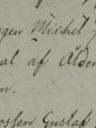 gen Michel
al af Ålder
n.
ossen Gustaf